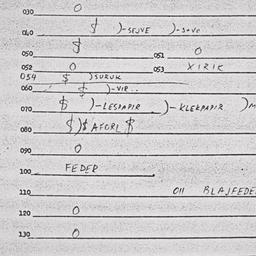 030 0
040 $ )-SEJVE )-SOVE
050 $ 051 0
052 0 053 XIRIK
054 $ )SURUK
060 $ )-VIR..
070 $ )-LESPAPIR )-KLEKPAPIR )M
080 $)$AFORL $
090 0
100 FEDER
110 011 BLAJFEDE
120 0
130 0